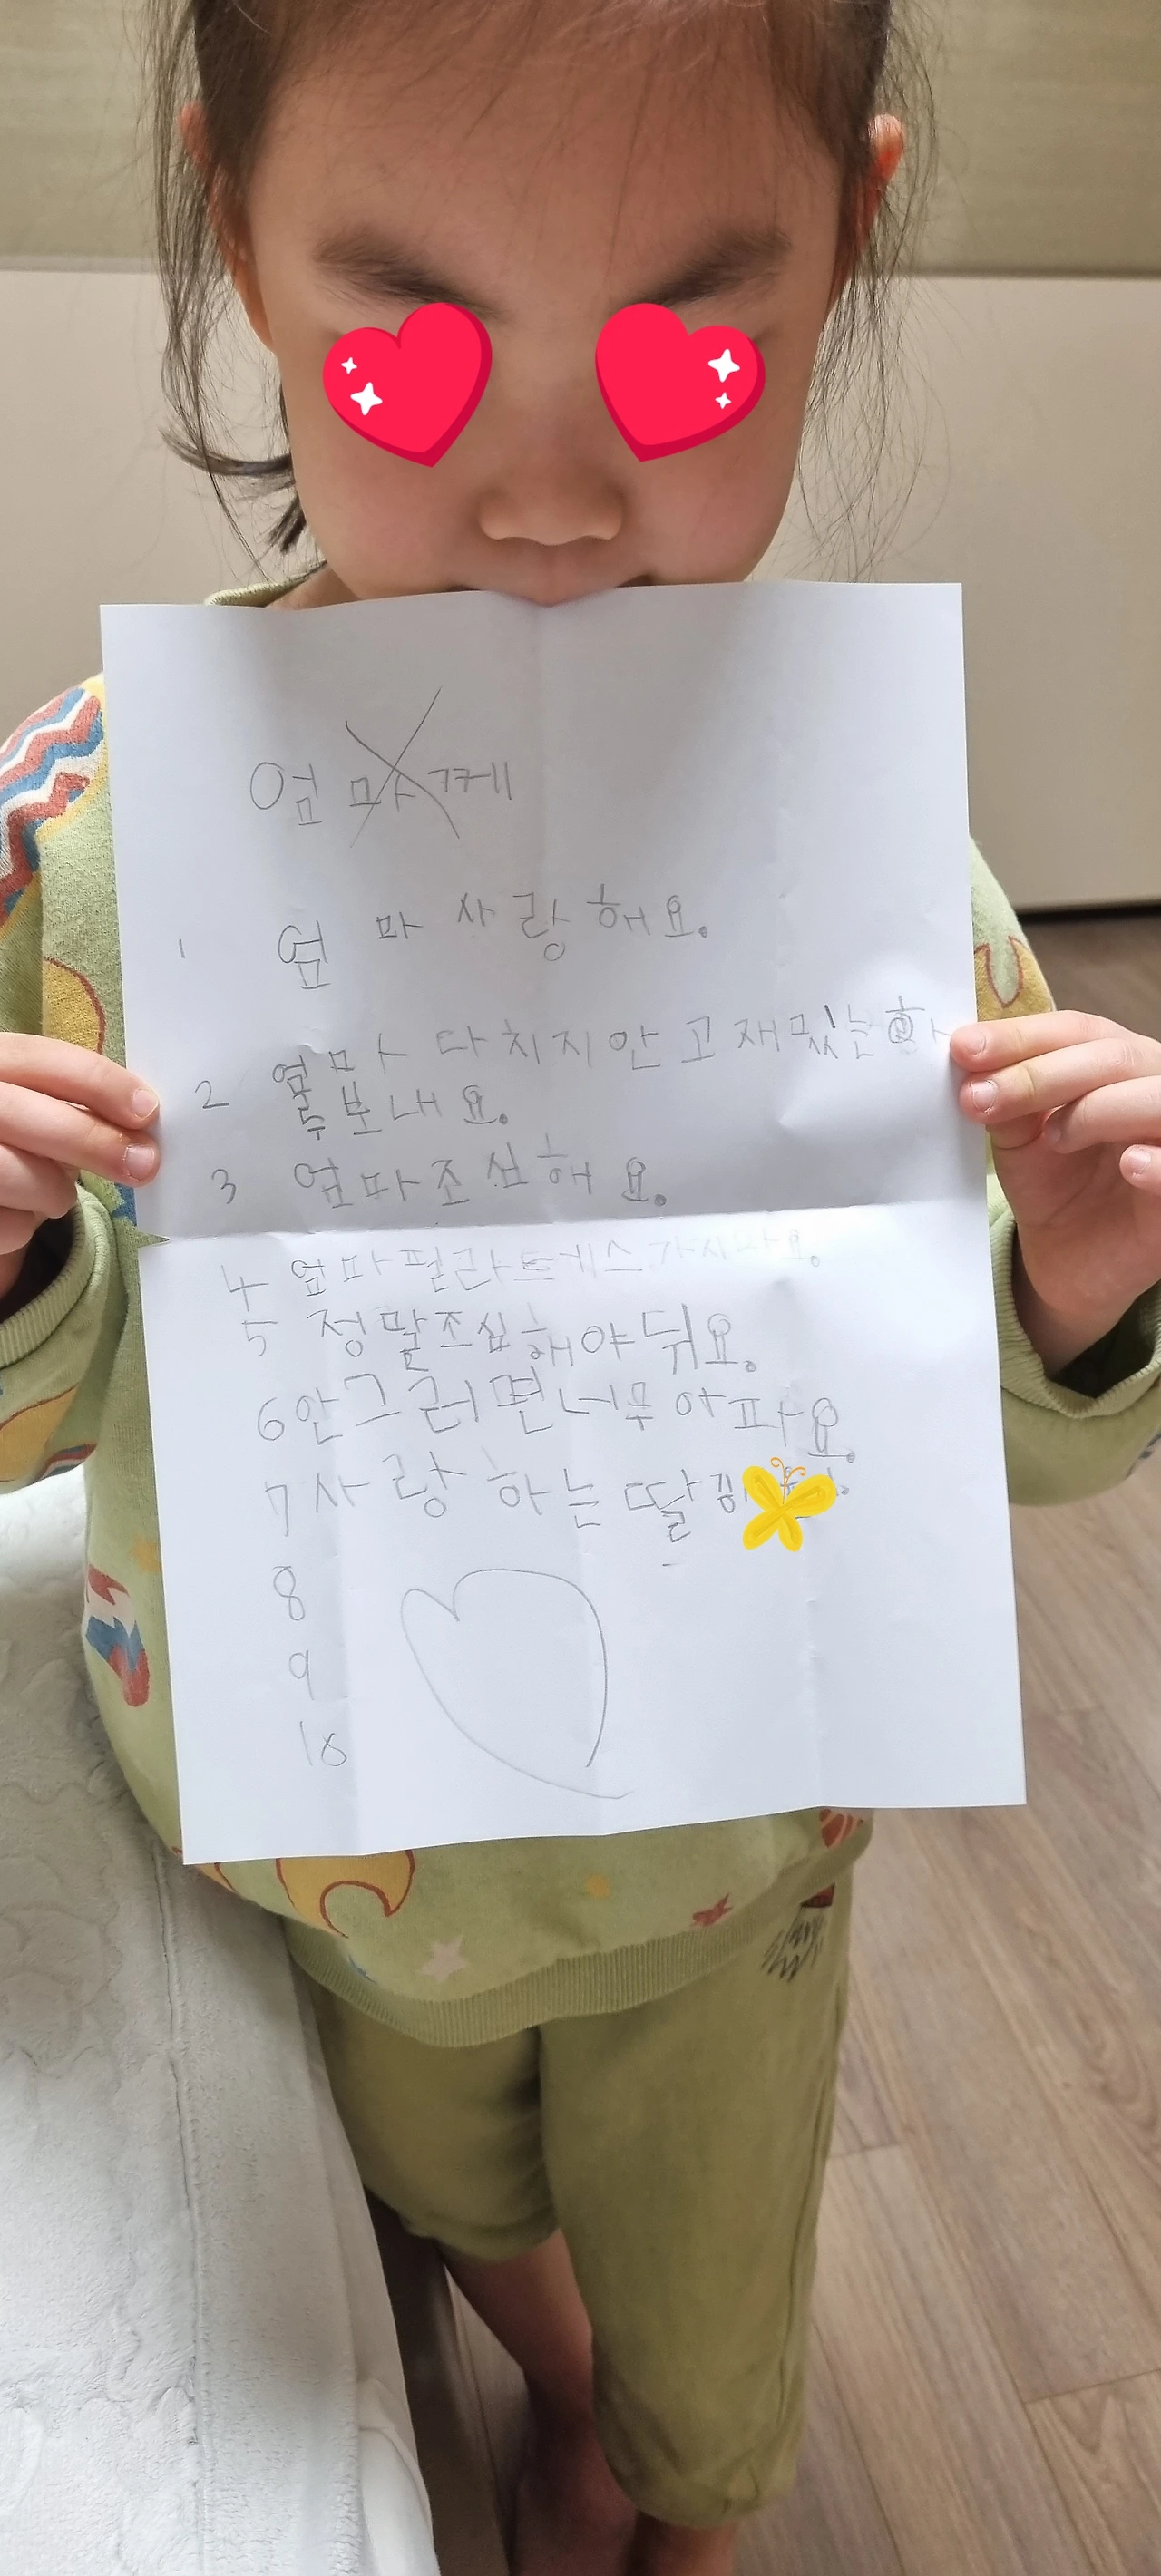 엄마께
1 엄마 사랑해요.
2 엄마 다치지안고재밌는하
루보내요.
3 엄마조심해요.
4 엄마필라트에스가지마요.
5 정말조심해야뒤요.
6 안그러면너무아파요.
7 사랑하는딸
8
9
10